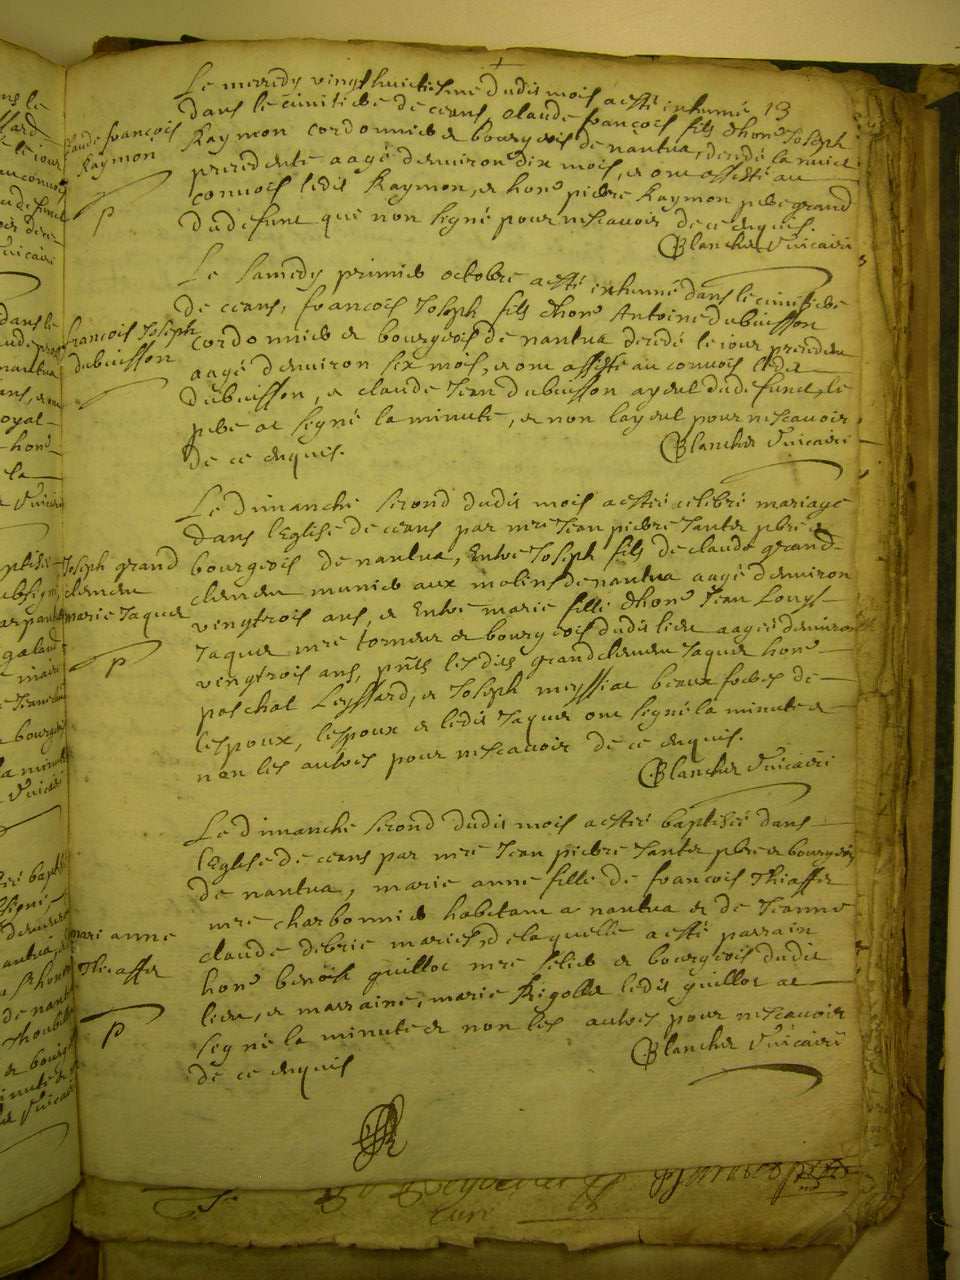 13
Le mercredy vingthuictiesme dudis mois a esté inhumé
dans le cimitiere de ceans, claude francois fils d'hon^e Joseph
Raymon cordonnier & bourgeois de nantua, decedé la nuict
precedente aagé d'environ dix mois, & ont assisté au
convois ledit Raymon, & hon^e pierre Raymon pere grand
du defunct qui non segné pour nescavoir de ce enquis.
Blanchet Vicaire
claude francois
Raymon
p
Le samedy premier octobre a esté inhumé dans le cimitiere
de ceans, francois Joseph fils d'hon^e Antoine dubuisson
cordonnier & bourgeois de nantua decedé le jour precedent
aagé d'environ six mois, & ont assisté au convois ledit
dubuisson, & claude Jean dubuisson ayeul du defunct, le
pere at segné la minute, & non layeul pour nescavoir
de ce enquis.
Blanchet Vicaire
francois Joseph
dubuisson
Le dimanche second dudis mois a esté celebré mariage
dans l'Eglise de ceans par m^re Jean pierre Tantet pbre &
bourgeois de nantua, Entre Joseph fils de claude grand
clement munier aux molins de nantua aagé d'environ
vingtrois ans, & Entre marie fille d'hon^e Jean Louys
Jaquet m^re torneur & bourgeois dudis lieu aagée d'environ
vingtrois ans, p^nts lesdis grandclement Jaquet hon^e
paschal Leyssard, & Joseph meyssiat beaux freres de
lespoux, lespoux & ledis Jaquet ont segné la minute &
non les autres pour nescavoir de ce enquis.
Blanchet Vicaire
Joseph grand
clement
marie Jaquet
p
Le dimanche second dudis mois a esté baptisée dans
l'Eglise de ceans par m^re Jean pierre Tantet pbre & bourgeois
de nantua, marie anne fille de francois Thiaffet
m^re charbonnier habitant a nantua & de Jeanne
claude debrie mariés, de laquelle a esté parrain
hon^e benoist guillot m^re selier & bourgeois dudit
lieu, & marraine, marie Rigollet ledis guillot at
segné la minute & non les autres pour nescavoir
de ce enquis
Blanchet Vicaire
mari anne
Thiaffet
p